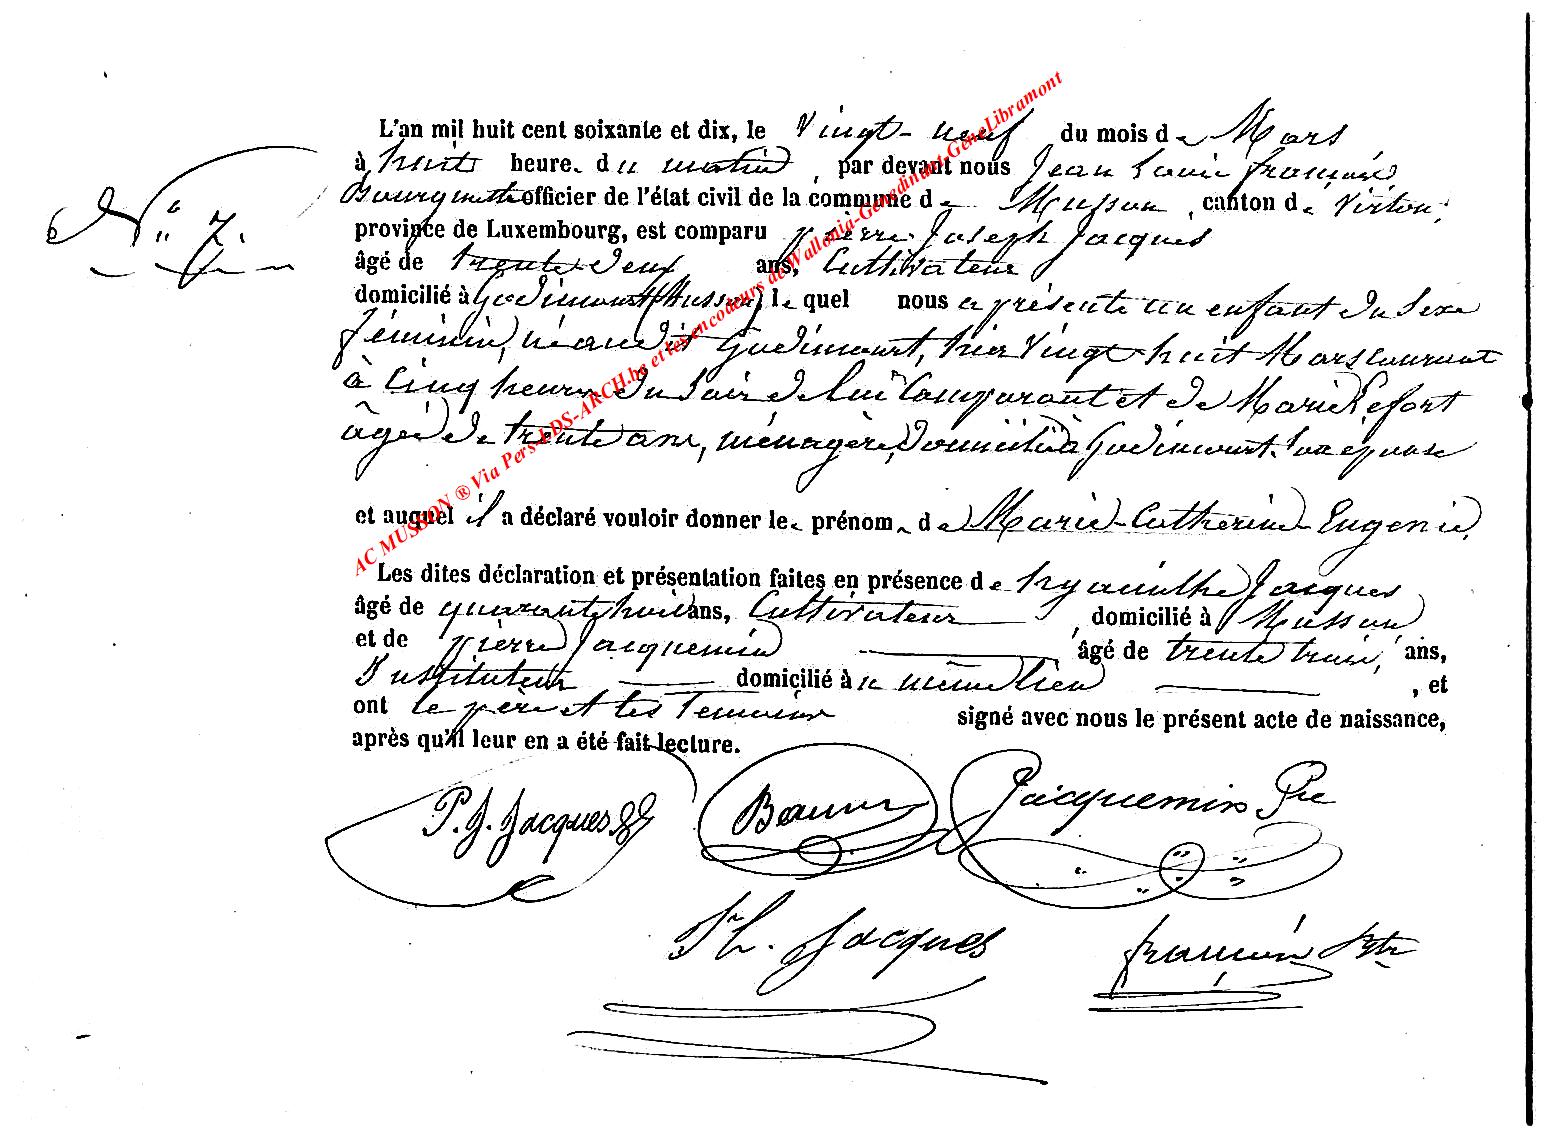 N° 7.
L'an mil huit cent soixante et dix, le Vingt-neuf du mois de Mars
à huit heures du matin, par devant nous Jean Louis François
officier de l'état civil de la commune de Musson, canton de Virton,
province de Luxembourg, est comparu pierre Joseph Jacques
âgé de trente deux ans, Cultivateur
domicilié à Godincourt (Musson) lequel nous a présenté un enfant du Sexe
féminin, né audit Godincourt, hier Vingt huit Mars courant
à Cinq heures du Soir de lui Comparant et de Marie Lefort
âgée de trente ans, ménagère, domiciliée à Godincourt, son épouse
et auquel il a déclaré vouloir donner les prénoms de Marie-Catherine-Eugenie,
Les dites déclaration et présentation faites en présence de hyacinthe Jacques
âgé de quarante huit ans, Cultivateur, domicilié à Musson
et de pierre Jacquemin âgé de trente trois, ans,
Instituteur domicilié au même lieu, et
ont le père et les Temoins signé avec nous le présent acte de naissance,
après qu'il leur en a été fait lecture.
P. J. Jacques Jacquemin Pre
h. Jacques françois
AC MUSSON ® Via Pers-LDS-ARCH.be et les encodeurs de Wallonia-Genedinant-GeneLibramont